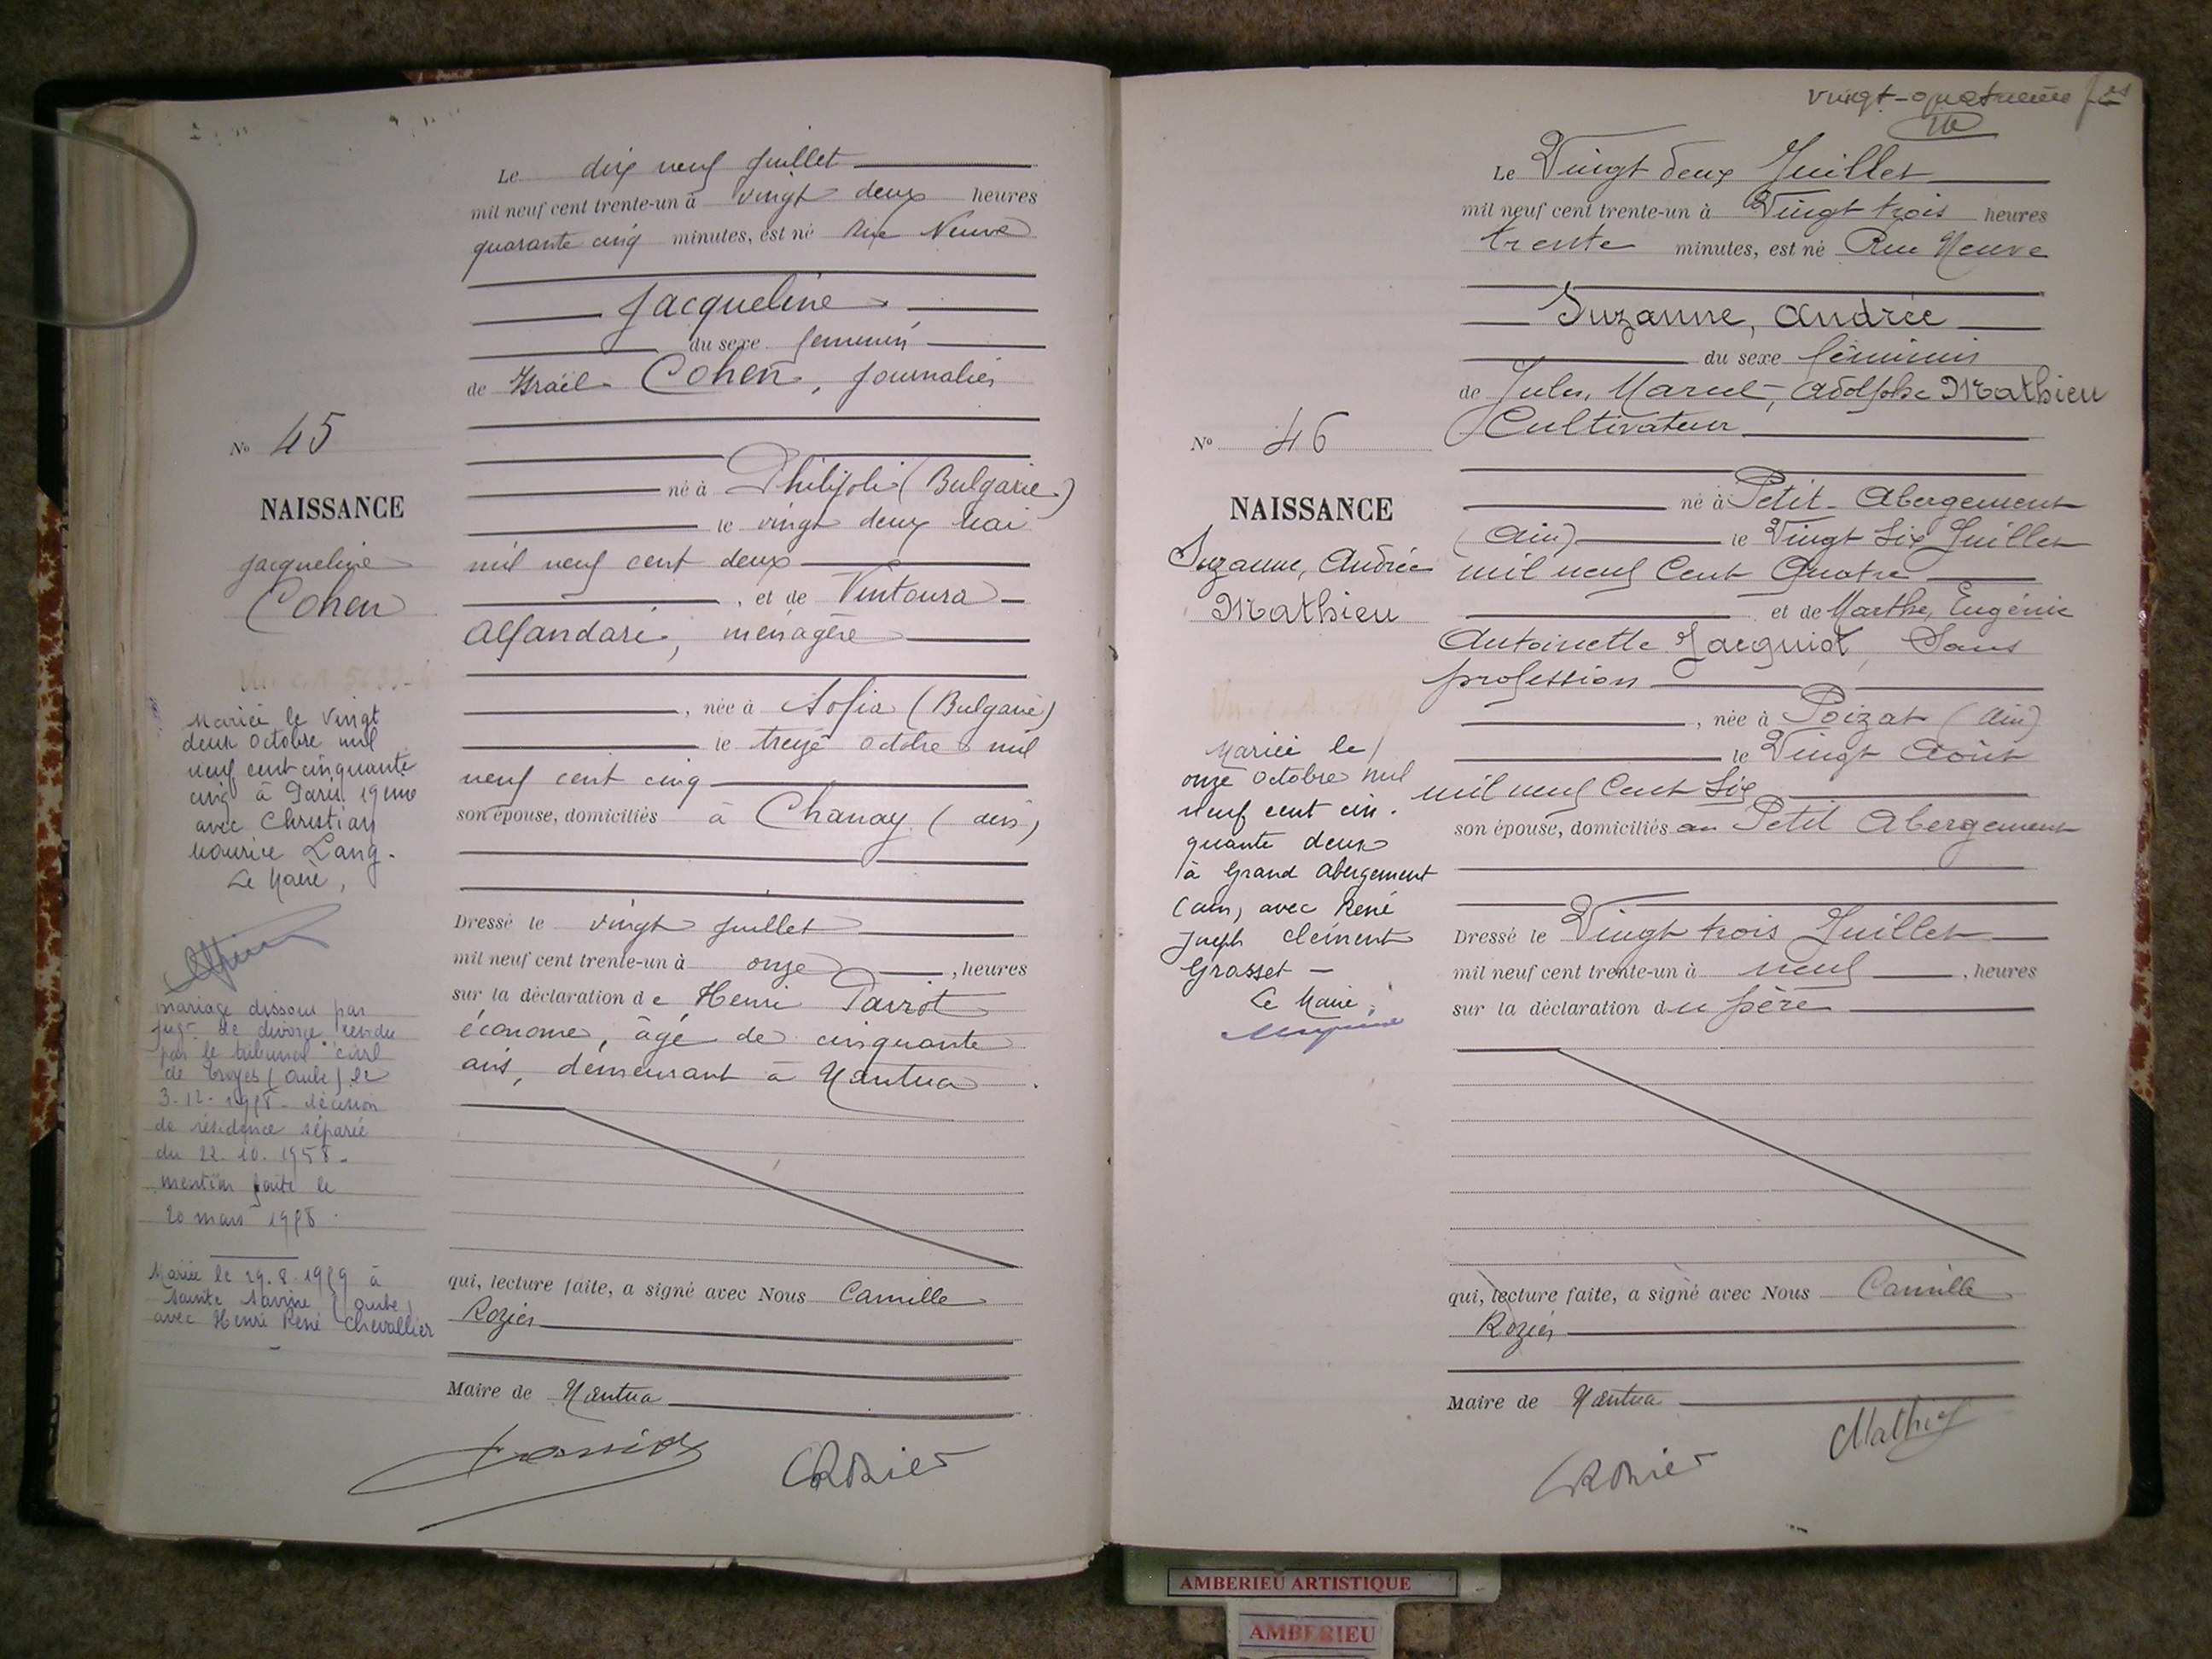 Le dix neuf juillet
mil neuf cent trente-un à vingt deux heures
quarante cinq minutes, est né rue Neuve
Jacqueline
du sexe féminin
de Israël Cohen, journalier
né à Philipoli (Bulgarie)
le vingt deux Mai
mil neuf cent deux
, et de Vintoura
Alfandari, ménagère
, née à Sofia (Bulgarie)
le treize octobre mil
neuf cent cinq
son épouse, domiciliés à Chanay (ain)
Dressé le vingt juillet
mil neuf cent trente-un à onze , heures
sur la déclaration de Henri Parrot
économe, âgé de cinquante
ans, demeurant à Nantua.
qui, lecture faite, a signé avec Nous Camille
Rozier
Maire de Nantua
CRozier
No 45
NAISSANCE
Jacqueline
Cohen
Mariée le vingt
deux octobre mil
neuf cent cinquante
cinq à Paris 19eme
avec Christian
Maurice Lang.
Le Maire,
mariage dissous par
jugt de divorce rendu
par le tribunal civil
de Troyes (Aube) le
décision
de résidence séparée
du 22.10.1958.
mention faite le
20 mars
Mariée le 29.8.1959 à
Sainte Savine (Aube)
avec Henri René Chevallier
Vingt-quatrième
Le Vingt deux Juillet
mil neuf cent trente-un à Vingt trois heures
trente minutes, est né Rue Neuve
Suzanne, Andrée
du sexe féminin
de Jules, Marcel, Adolphe Mathieu
Cultivateur
né à Petit-Abergement
(Ain) le Vingt Six Juillet
mil neuf Cent Quatre
et de Marthe, Eugénie
Antoinette Jacquiot, Sans
profession
, née à Poizat (Ain)
le Vingt Août
mil neuf Cent Six
son épouse, domiciliés au Petit Abergement
Dressé le Vingt trois Juillet
mil neuf cent trente-un à neuf , heures
sur la déclaration du père
qui, lecture faite, a signé avec Nous Camille
Rozier
Maire de Nantua
Mathieu
CRozier
No 46
NAISSANCE
Suzanne, Andrée
Mathieu
Mariée le
onze octobre mil
neuf cent cin-
quante deux
à Grand Abergement
(ain) avec René
Joseph Clément
Grasset -
Le Maire,
AMBERIEU ARTISTIQUE
AMBERIEU